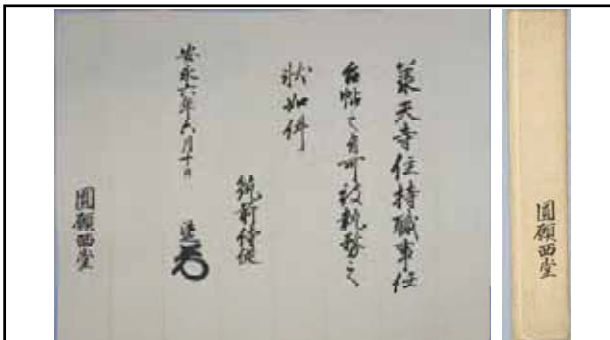 承天寺住持職事任
台帖之旨可被執務之
状如件
筑前侍従
安永六年六月十日
圓願西堂
圓願西堂